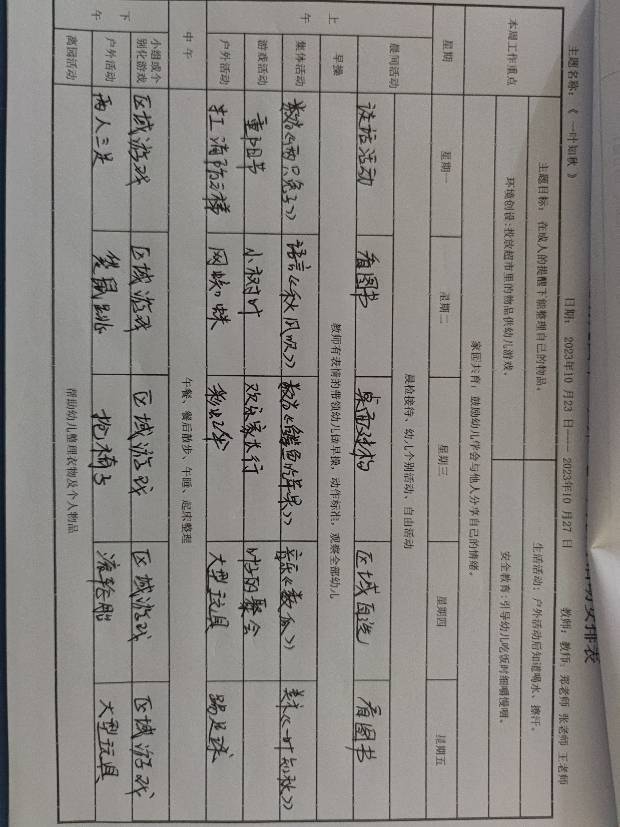 活动安排表
主题名称：《 一叶知秋 》 日期： 2023年10 月23 日—— 2023年10 月27 日 教师：教师：郑老师 张老师 王老师
本周工作重点
主题目标：在成人的提醒下能整理自己的物品。 生活活动：户外活动后知道喝水、擦汗。
环境创设:投放超市里的物品供幼儿游戏。 安全教育:引导幼儿吃饭时细嚼慢咽。
家园共育：鼓励幼儿学会与他人分享自己的情绪。
星期 星期一 星期二 星期三 星期四 星期五
晨间活动 晨检接待、幼儿个别活动、自由活动
谈话活动 看图书 桌面建构 区域自选 看图书
上午
早操 教师有表情的带领幼儿做早操，动作标准，观察全部幼儿
集体活动 数学《两只兔子》 语言《秋风吹》 数学《鳄鱼吃苹果》 音乐《数瓜》 美术《一叶知秋》
游戏活动 重阳节 小树叶 欢乐家步行 时的聚会
户外活动 扛 消防云梯 网蜘蛛 大型玩具 踢足球
中午 午餐、餐后散步、午睡、起床整理
下午
小组或个别化游戏 区域游戏 区域游戏 区域游戏 区域游戏 区域游戏
户外活动 两人三足 袋鼠跳 抢椅子 滚轮胎 大型玩具
离园活动 帮助幼儿整理衣物及个人物品